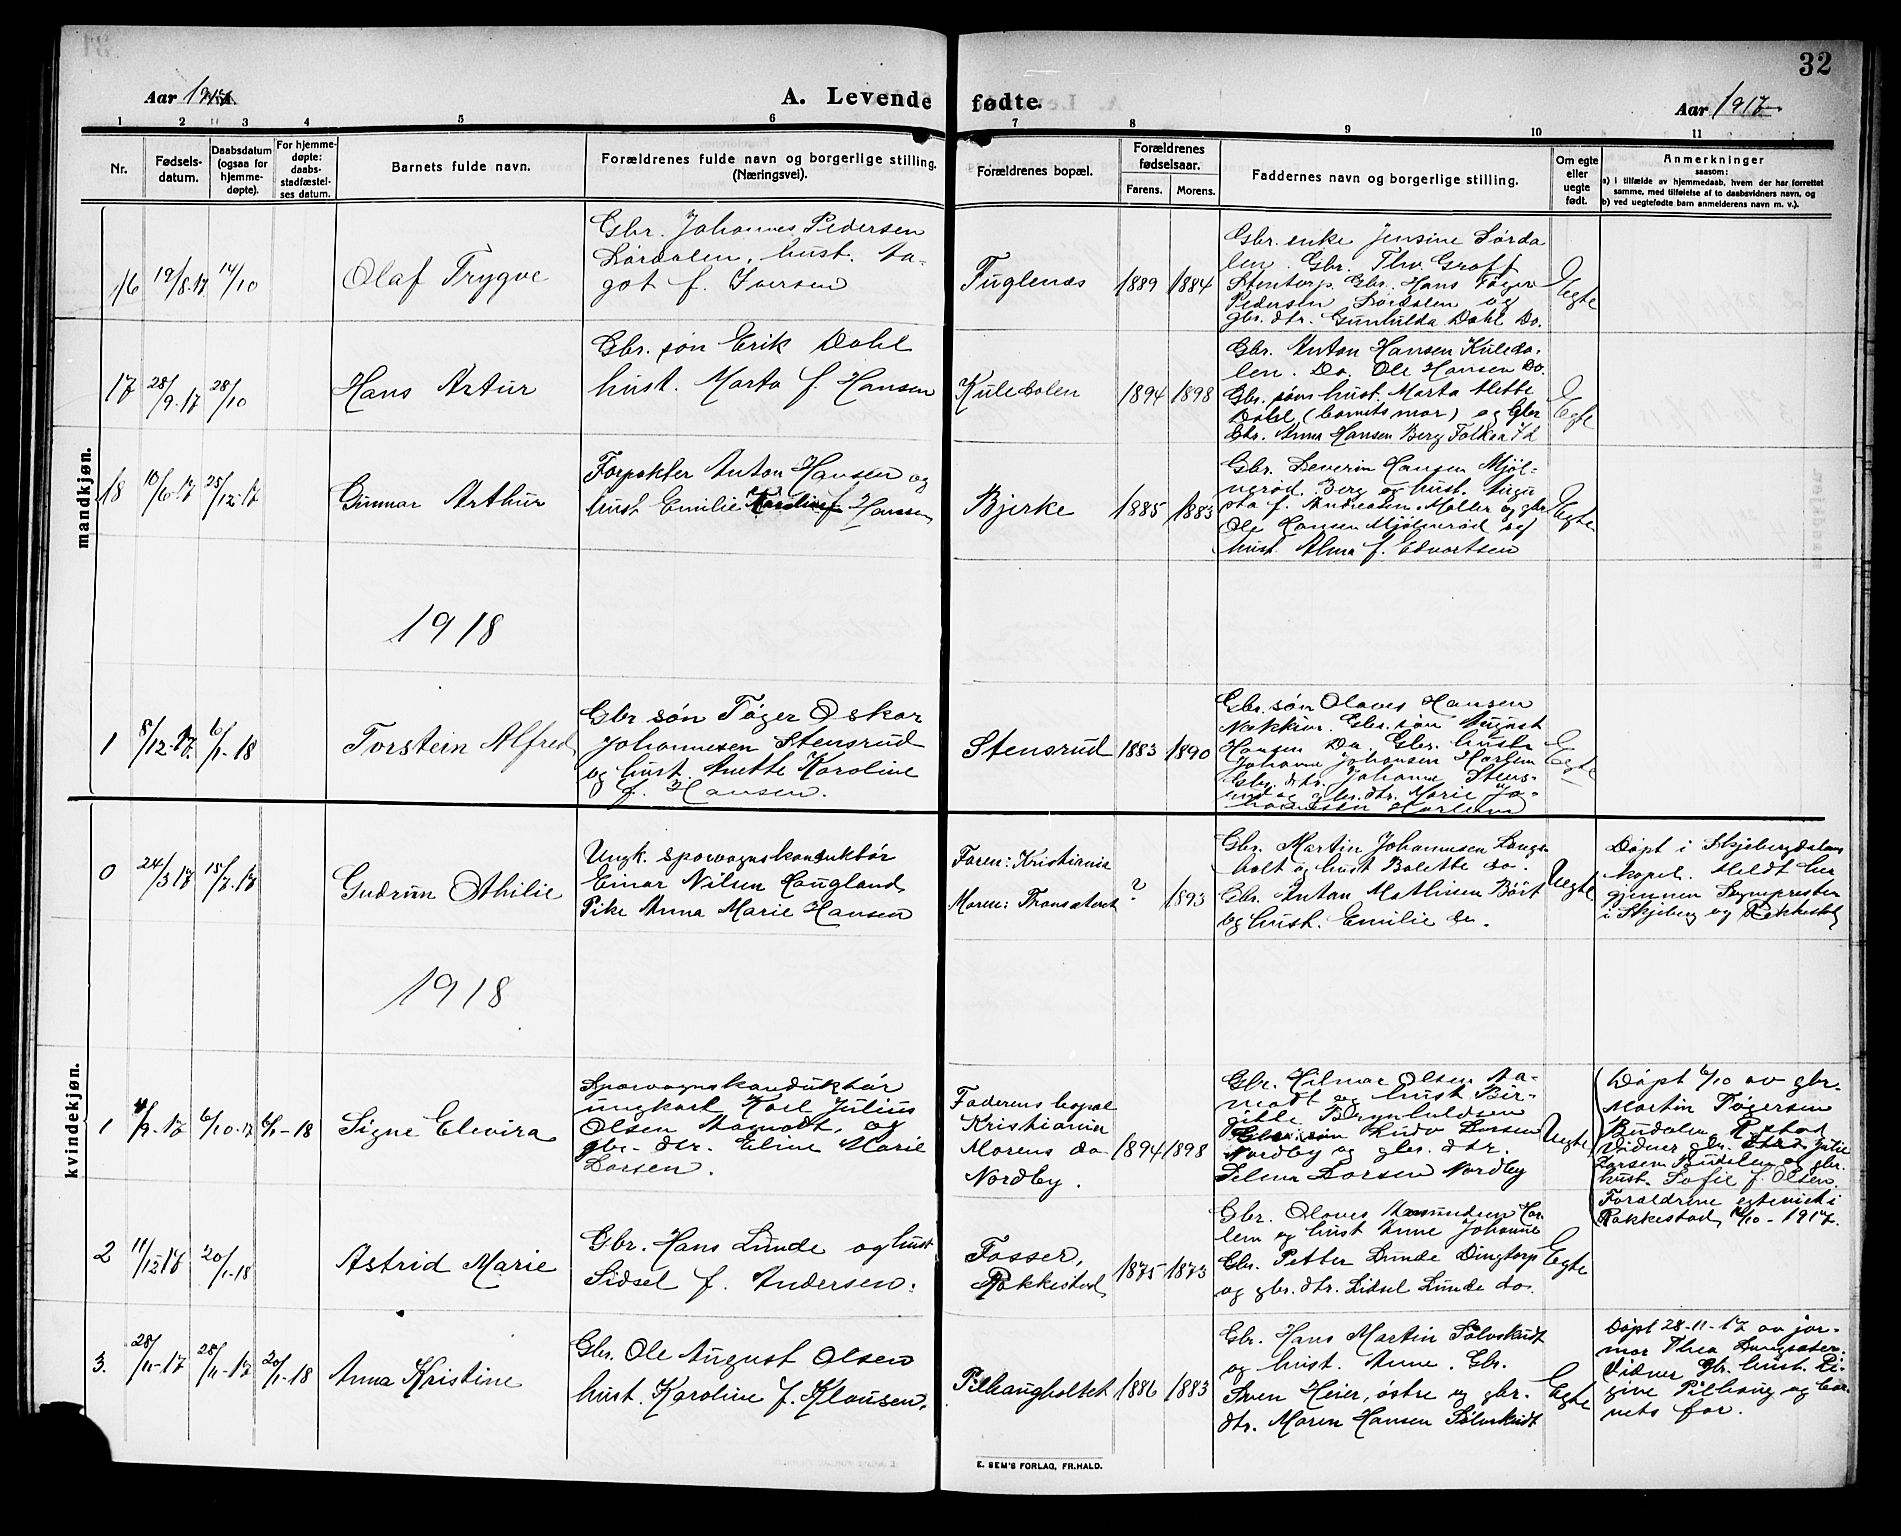 32
Aar 1917
A. Levende fødte.
Aar 1917
1 2 3 4 5 6 7 8 9 10 11
Nr.
Fødsels-
datum.
Daabsdatum
(ogsaa for
hjemme-
døpte).
For hjemme-
døpte:
daabs-
stadfæstel-
ses datum.
Barnets fulde navn.
Forældrenes fulde navn og borgerlige stilling.
(Næringsvei).
Forældrenes bopæl.
Forældrenes
fødselsaar.
Farens. Morens.
Faddernes navn og borgerlige stilling.
Om egte
eller
uegte
født.
Anmerkninger
saasom:
a) i tilfælde av hjemmedaab, hvem der har forrettet
samme, med tilføielse af to daabsvidners navn, og
b) ved uegtefødte barn anmelderens navn m. v.).
mandkjøn.
16
19/8.17
14/10
Olaf Trygve
Gbr. Johannes Pedersen
Lørdalen, hust. Aa-
got f. Iversen
Fuglenæs
1889 1884
Gbr. enke Jensine Lørda
len. Gbr. Thv. Graff
Stentorp. Gbr. Hans Tøger
Pedersen Lørdalen og
gbr. dtr. Gunhilda Dahl Do.
Egte
17
28/9.17
28/10
Hans Artur
Gbr. søn Erik Dahl
hust. Marta f. Hansen
Kuledalen
1894 1898
Gbr. Anton Hansen Kuleda-
len. Do. Ole Hansen Do.
Gbr. søns hust. Marta Alette
Dahl (barnets mor) og Gbr
dtr. Anna Hansen Berg
Egte
18
10/6.17
25/12.17
Gunnar Arthur
Forpakter Anton Hansen og
hust Emilie Karoline f Hansen
Bjerke
1885 1883
Gbr. Severin Hansen Mjøl-
nerød Berg og hust. Augu
sta f. Andreasen Møller og gbr
Ole Hansen Mjølnerød og
hust. Alma f. Edvartsen
Egte
1918
1
8/12-17.
6/1-18
Torstein Alfred
Gbr søn Tøger Oskar
Johannesen Stensrud
og hust. Anette Karoline
f. Hansen.
Stensrud
1883 1890
Gbr. søn Olaves Hansen
Gbr. søn August
Hansen Do. Gbr. hustr
Johanne Johansen Harlem
Gbr. dtr. Johanne Stens-
rud og gbr. dtr. Marie Jo-
hannessen Harlem
Egte
kvindekjøn.
0
24/3 17
15/7.17
Gudrun Othilie
Ungk. sporvognskonduktør
Einar Nilsen Haugland,
Pike Anna Marie Hansen
Faren: Kristiania
Moren:
? 1893
Gbr. Martin Johannesen Lange
holt og hust Bolette do.
Gbr. Anton Mathisen Bøst
og hust. Emilie do.
Uegte
Døpt i Skjebergdalens
kapel. Meldt her
gjennem Sogneprester
i Skjeberg og Rakkestad
1918
1
4/9-17
6/10-17
6/1-18
Signe Elevira
Sporvognskonduktør
ungkarl Karl Julius
Olsen Aamodt, og
gbr. dtr. Eline Marie
Larsen.
Faderens bopæl
Kristiania
Morens do
Nordby.
1894 1898
Gbr. Hilmar Olsen Aa-
modt og hust Bir-
gitte Brynhildsen
Gbr. søn Ludv Larsen
Nordby og gbr. dtr.
Selma Larsen Nordby
Uegte
Døpt 6/10 av gbr.
Martin Tøgersen
Budalen, R.stad
Vidner gbr. dtr. Julie
Larsen Budalen og gbr.
hust. Sofie f. Olsen.
Forældrene egteviet i
Rakkestad 14/10-1917.
2
11/12 17
20/1-18
Astrid Marie
Gbr. Hans Lunde og hust
Sidsel f. Andersen.
Fosser,
Rakkestad
1875 1873
Gbr. Olaves Asmundsen Har
lem og hust Anne Johanne
Gbr. Petter Lunde Dingtorp
og gbr. dtr. Sidsel Lunde do.
Egte
3.
28/11-17
28/11-17
20/1-18
Anna Kristine
Gbr. Ole August Olsen
hust. Karoline f. Klausen.
Pilhaugholtet
1886 1883
Gbr. Hans Martin Sølvskudt
og hust. Anne. Gbr.
Sven Heier, østre og gbr.
dtr. Maren Hansen Sølvskudt
Egte
Døpt 28-11-17 av jor-
mor Thea Langsæter.
Vidner Gbr. hust. Li-
give Pilhaug og bar-
nets far.
E. SEM'S FORLAG, FR.HALD.